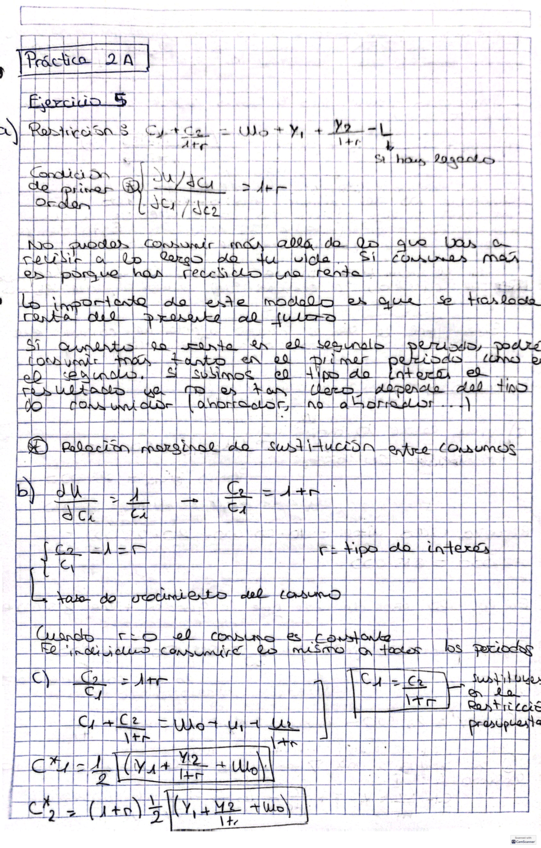 Práctica 2A
Ejercicio 5
a) Restricción: C1 + C2/1+r = W0 + Y1 + Y2/1+r - L
↓ Si hay legado
Condición de primer orden ⊛ { JU/JC1 / JC1/JC2 = 1+r
No puedes consumir más allá de lo que vas a
recibir a lo largo de tu vida. Si consumes más
es porque has recibido una renta
Lo importante de este modelo es que se traslada
renta del presente al futuro
Si aumento la renta en el segundo periodo, podré
consumir más tanto en el primer periodo como en
el segundo. Si subimos el tipo de interés el
resultado ya no es tan claro, depende del tipo
de consumidor (ahorrador, no ahorrador...)
⊛ Relación marginal de sustitución entre consumos
b) dU/dC1 = 1/C1 → C2/C1 = 1+r
{ C2/C1 - 1 = r r = tipo de interés
↳ tasa de crecimiento del consumo
Cuando r=0 el consumo es constante
El individuo consumirá lo mismo en todos los periodos
c) C2/C1 = 1+r
C1 = C2/1+r → sustituyes en la Restricción presupuesta
C1 + C2/1+r = W0 + y1 + y2/1+r
C*1 = 1/2 (Y1 + Y2/1+r + W0)
C*2 = (1+r) 1/2 (Y1 + Y2/1+r + W0)
CamScanner